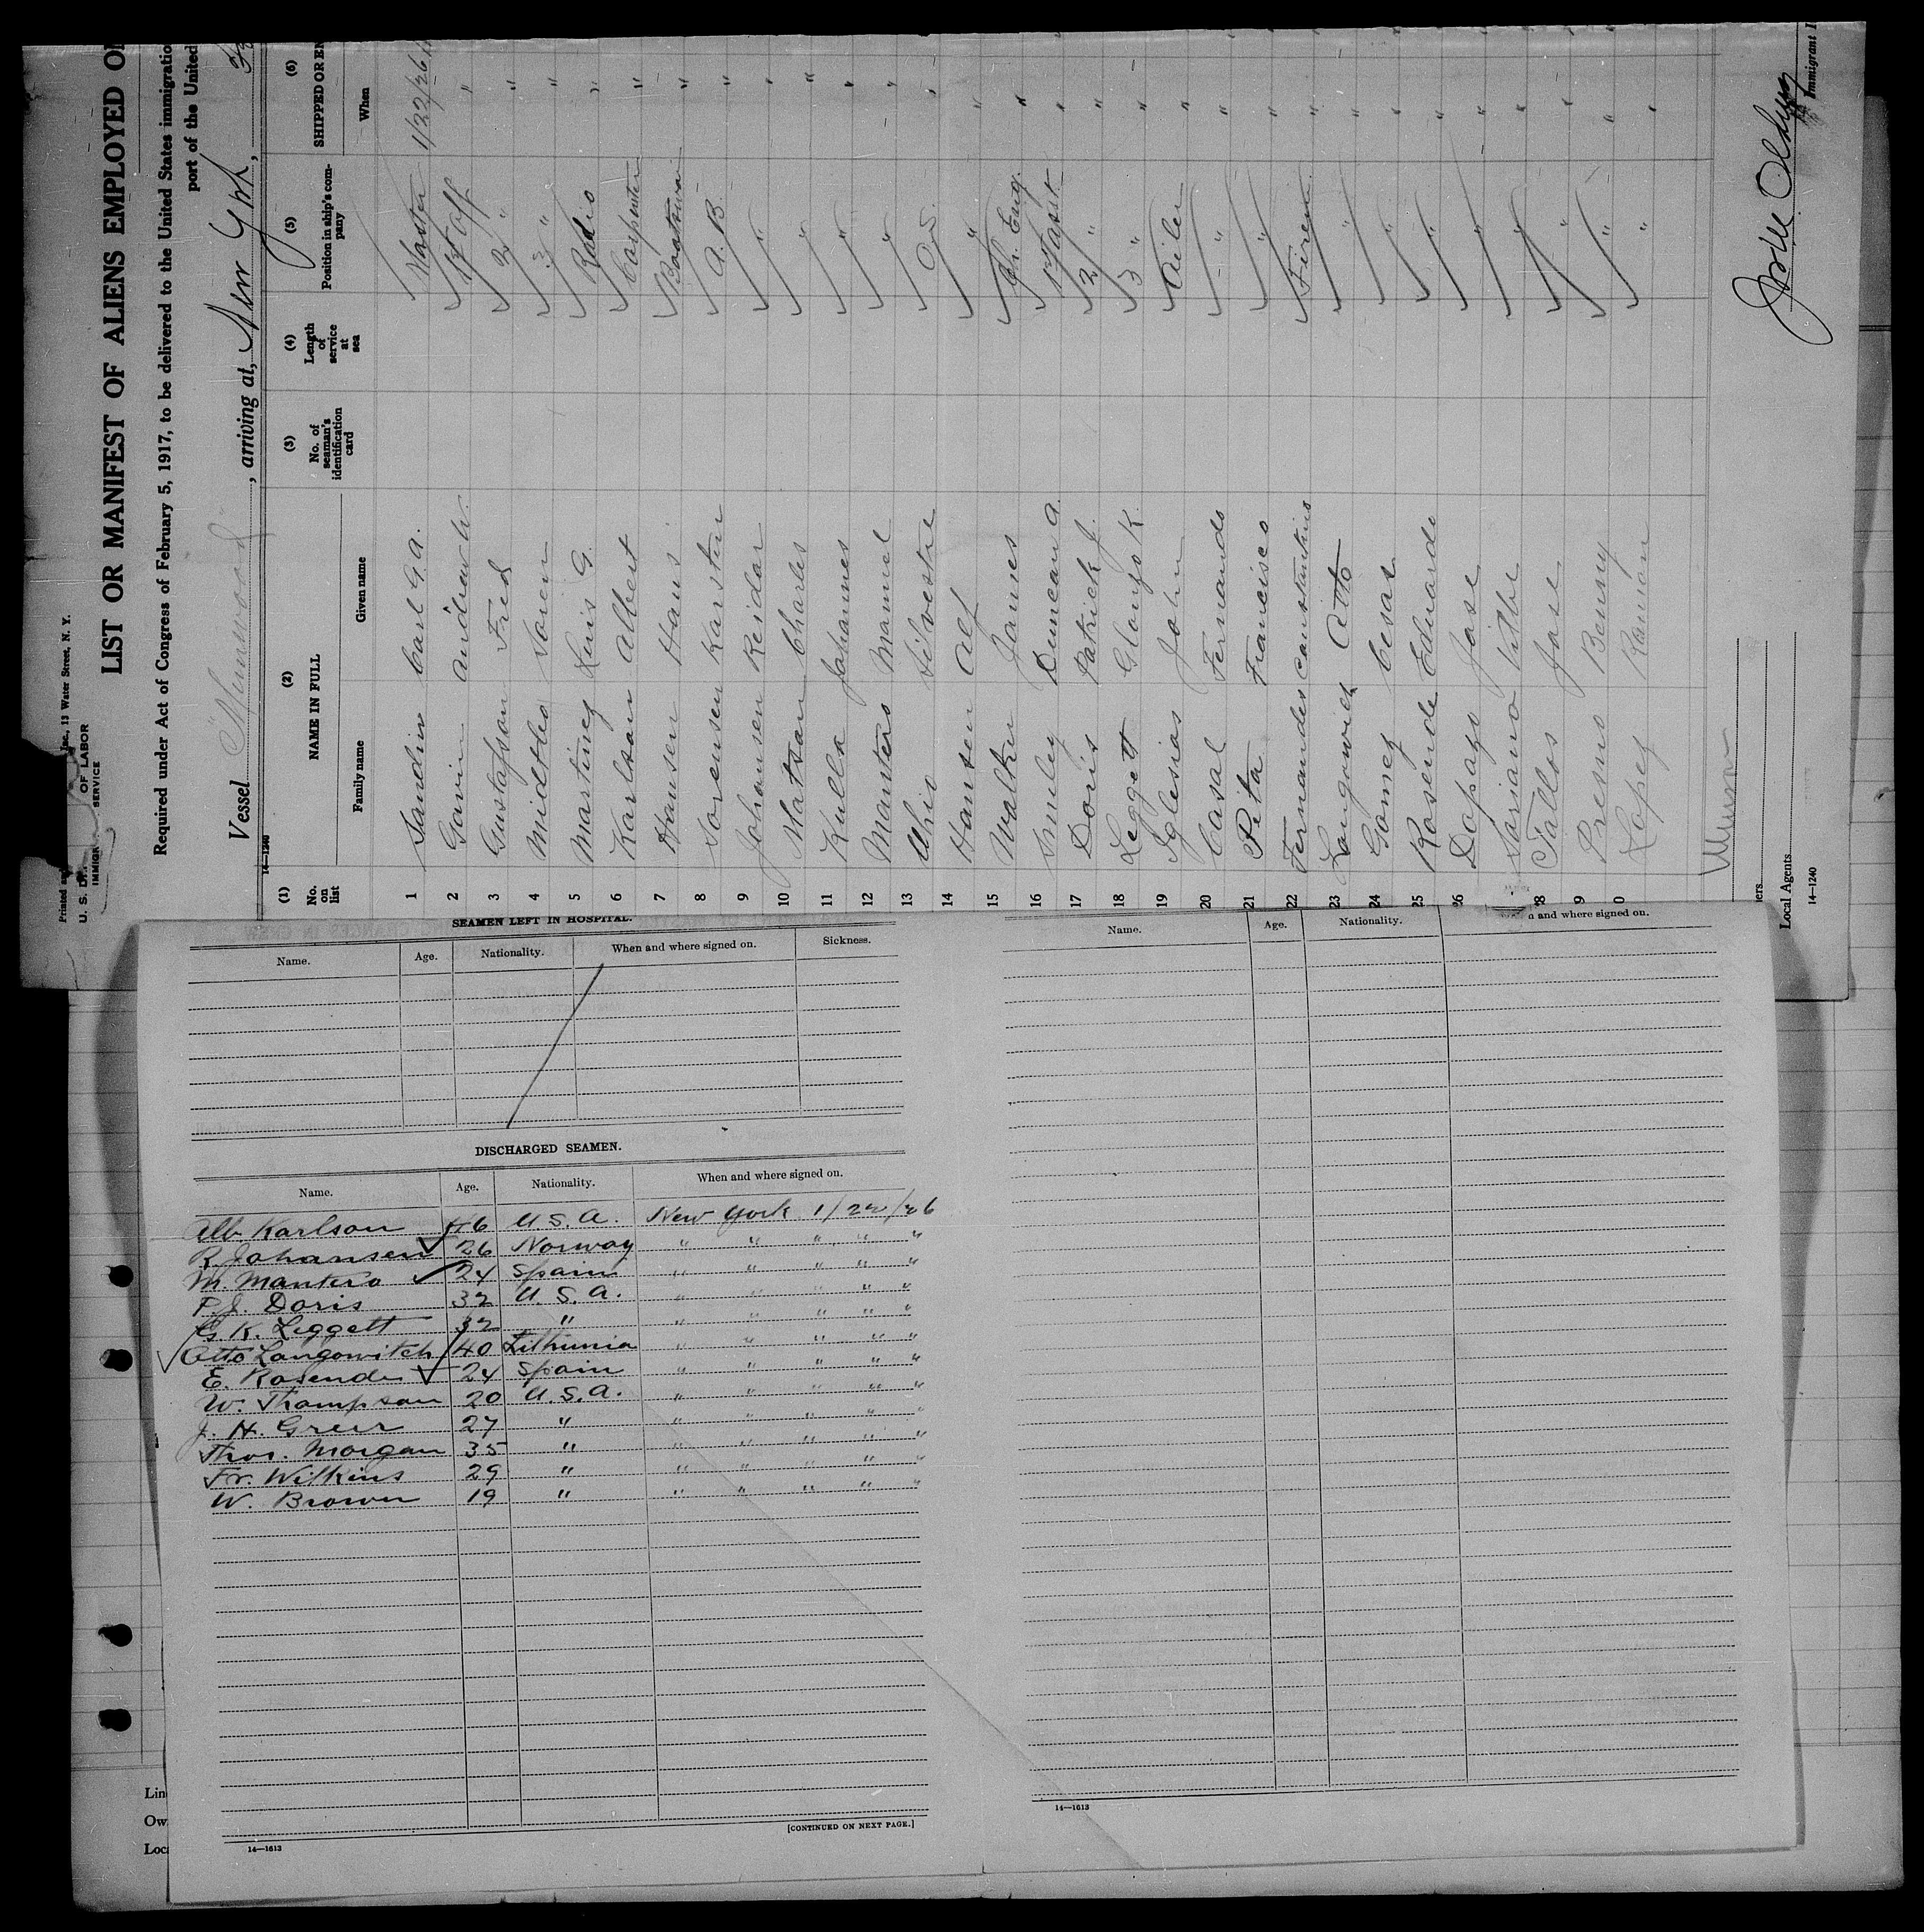 Printed
Inc., 13 Water Street, N. Y.
U. S. D OF LABOR
IMMIGR SERVICE
LIST OR MANIFEST OF ALIENS EMPLOYED ON
Required under Act of Congress of February 5, 1917, to be delivered to the United States immigratio
port of the United
Vessel "Munwood", arriving at, New York,
14—1240
(1) (2) (3) (4) (5) (6)
No. on list NAME IN FULL No. of seaman's identification card Length of service at sea Position in ship's company SHIPPED OR EN
Family name Given name When
1 Sandin Carl G. A. Master 1/22/26
2 Gavin Andrew W. 1st Off "
3 Gustafson Fred 2 " "
4 Midtbo Soren 3 " "
5 Martinez Luis G. Radio "
6 Karlson Albert Carpenter "
7 Hansen Hans Boatswain "
8 Sorensen Karsten A. B. "
9 Johansen Reidar " "
10 Matson Charles " "
11 Kulla Johannes " "
12 Mantero Manuel " "
13 Silvestre O. S. "
14 Hansen Alf " "
15 Walker James Ch. Eng. "
16 Smiley Duncan A. 1st Asst "
17 Doris Patrick J. 2 " "
18 Leggett Glonzo K. 3 " "
19 Iglesias John Oiler "
20 Casal Fernando " "
21 Pita Francisco " "
22 Fernandes Constantino Firem. "
23 Langowich Otto " "
24 Gomez Cesar " "
25 Rosende Eduardo " "
26 Dopazo Jose " "
Soriano " "
28 Tallos Jose " "
9 Presno Benny " "
0 Lopez Ramon " "
Munson
ers
Local Agents
14—1240
Immigrant I
SEAMEN LEFT IN HOSPITAL.
Name. Age. Nationality. When and where signed on. Sickness.
DISCHARGED SEAMEN.
Name. Age. Nationality. When and where signed on.
Alb Karlson 46 U. S. A. New York 1/22/26
R. Johansen 26 Norway " " " " "
M. Mantero 24 Spain " " " " "
P. J. Doris 32 U. S. A. " " " " "
G. K. Leggett 32 " " " " " "
Otto Langowitch 40 Lithunia " " " " "
E. Rosende 24 Spain " " " " "
W. Thompson 20 U. S. A. " " " " "
J. H. Greer 27 " " " " " "
Thos. Morgan 35 " " " " " "
Fr. Wilkins 29 " " " " " "
W. Brown 19 " " " " " "
[CONTINUED ON NEXT PAGE.]
14—1613
Name. Age. Nationality. and where signed on.
14—1613
Lin
Ow
Loc